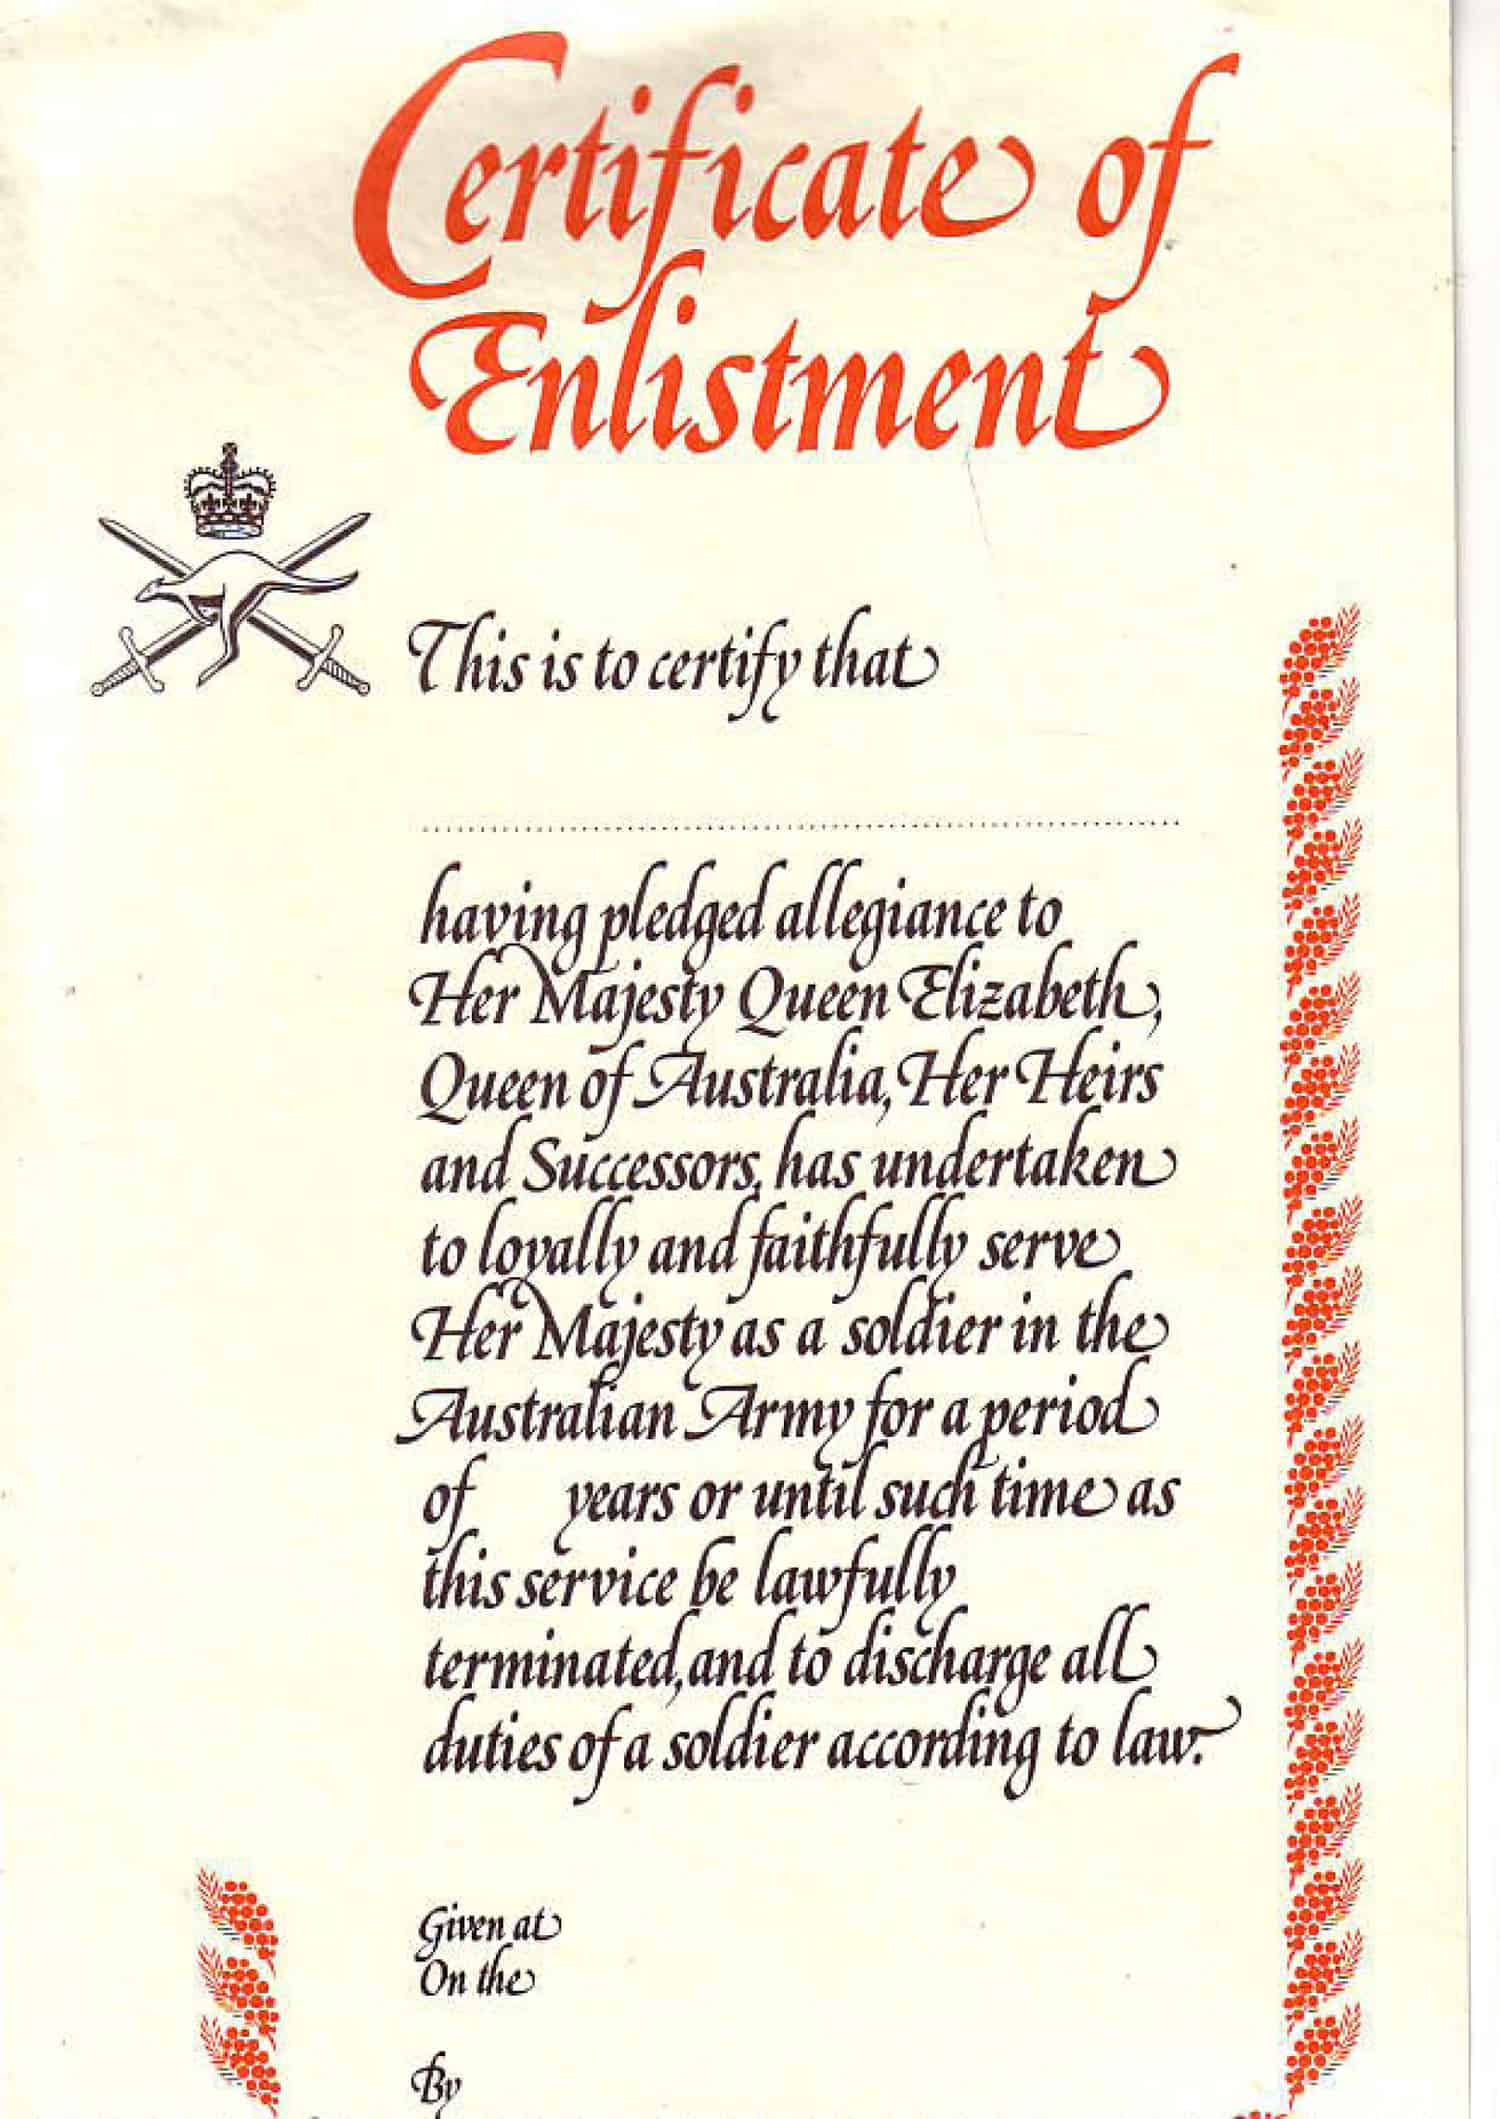 Certificate of
Enlistment
This is to certify that
having pledged allegiance to
Her Majesty Queen Elizabeth,
Queen of Australia, Her Heirs
and Successors, has undertaken
to loyally and faithfully serve
Her Majesty as a soldier in the
Australian Army for a period
of years or until such time as
this service be lawfully
terminated, and to discharge all
duties of a soldier according to law.
Given at
On the
By